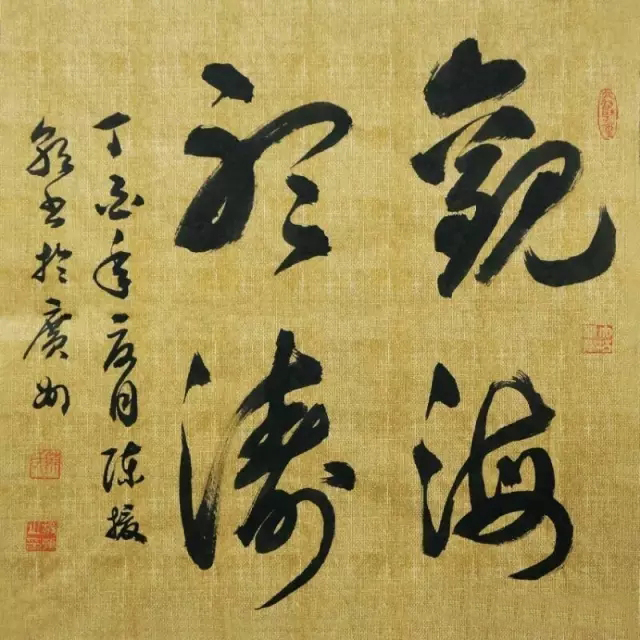 觀海
聽濤
丁酉年夏月陳振
書於廣州